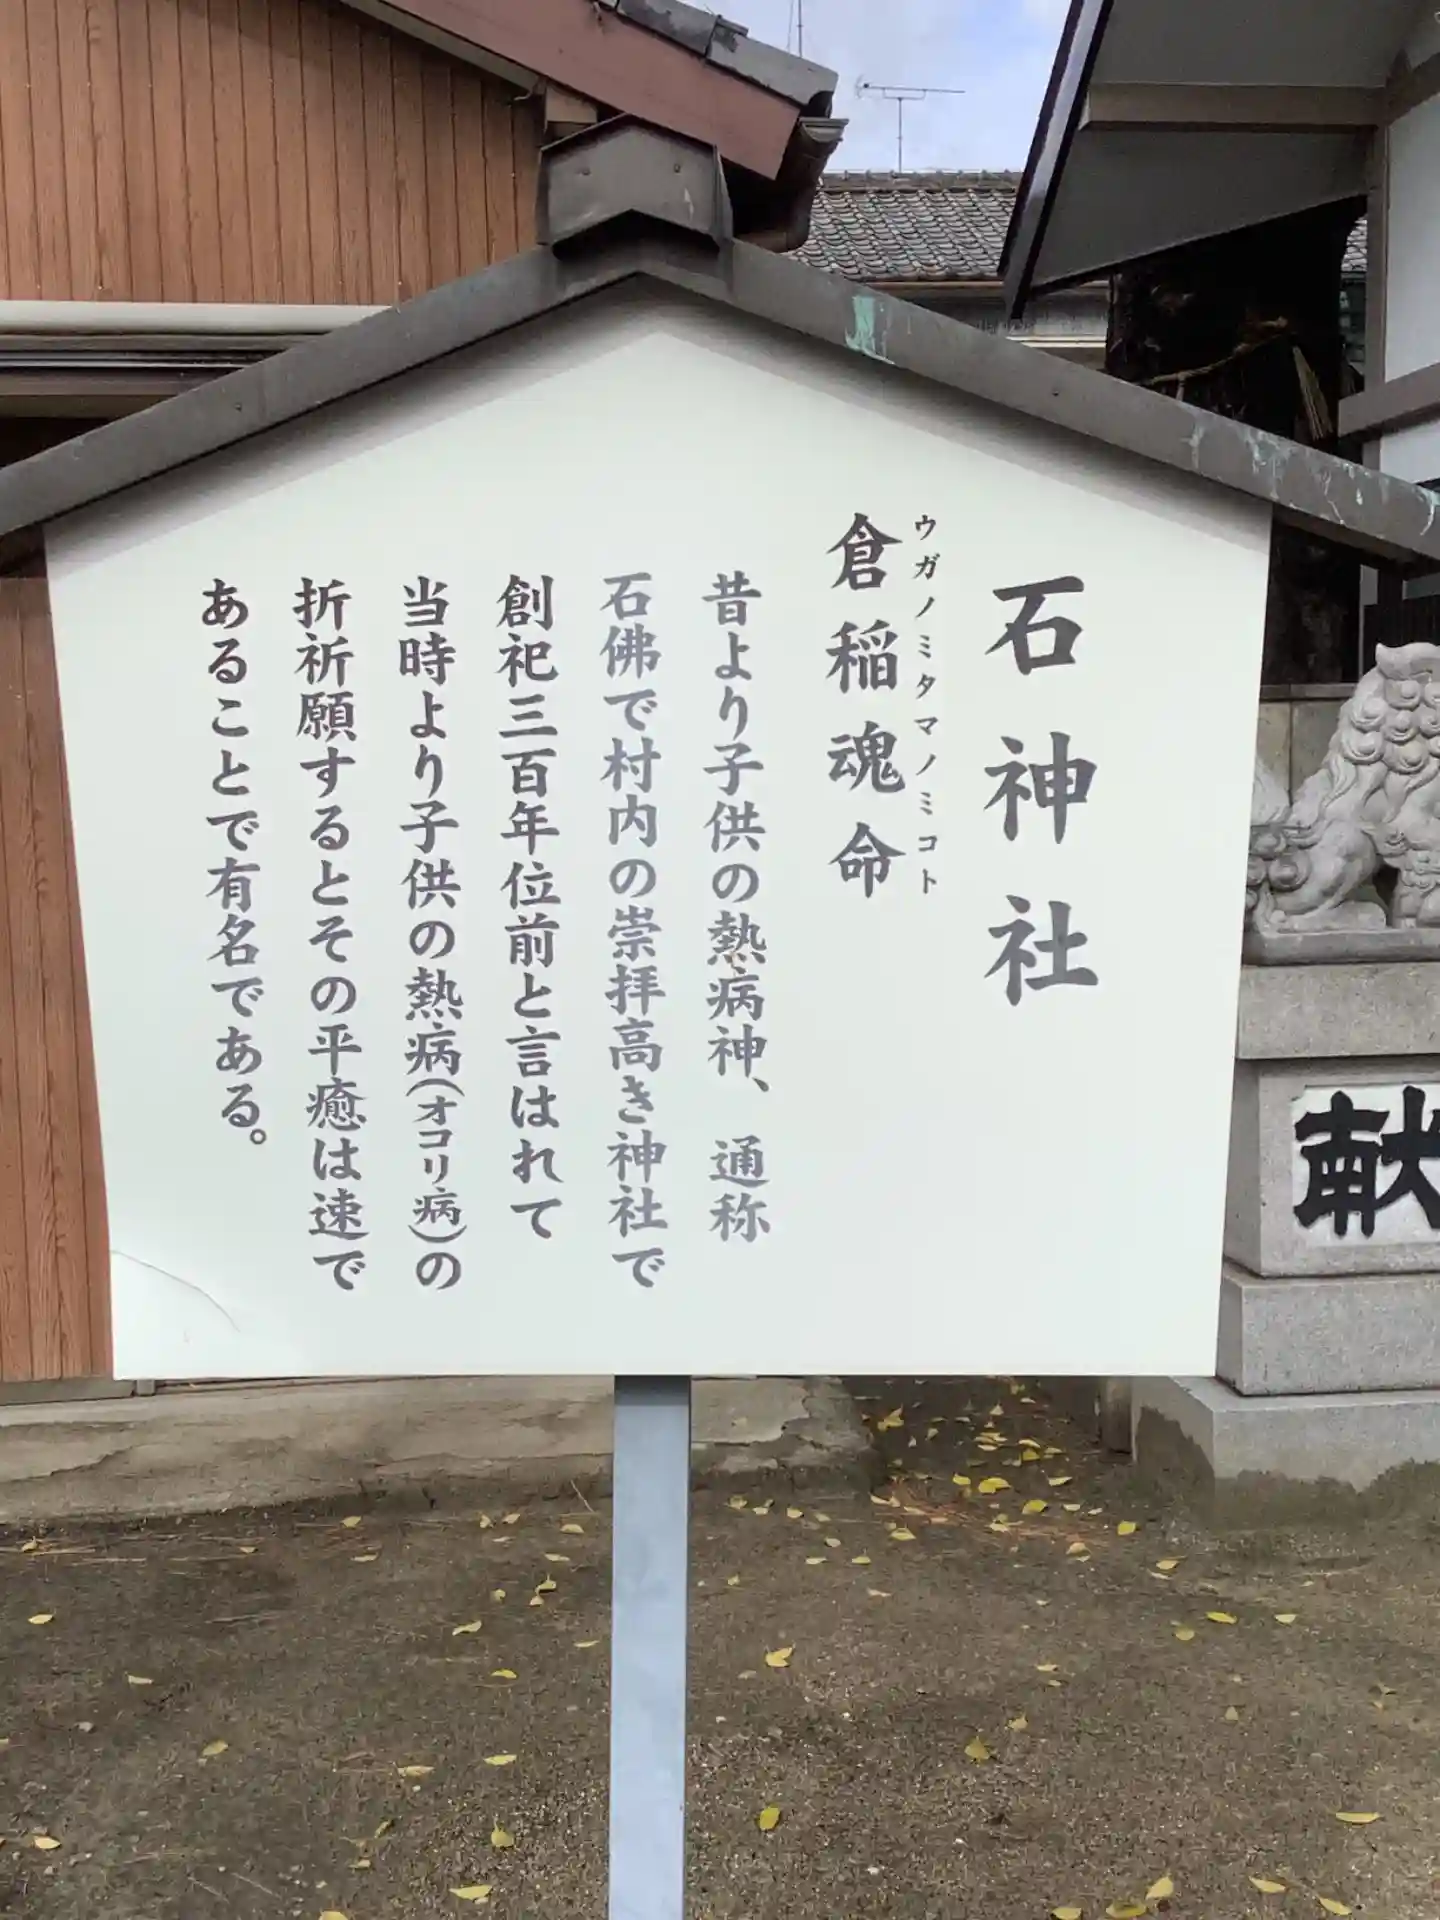 石神社
倉稲魂命
ウガノミタマノミコト
昔より子供の熱病神、通称
石佛で村内の崇拝高き神社で
創祀三百年位前と言はれて
当時より子供の熱病(オコリ病)の
折祈願するとその平癒は速で
あることで有名である。
献